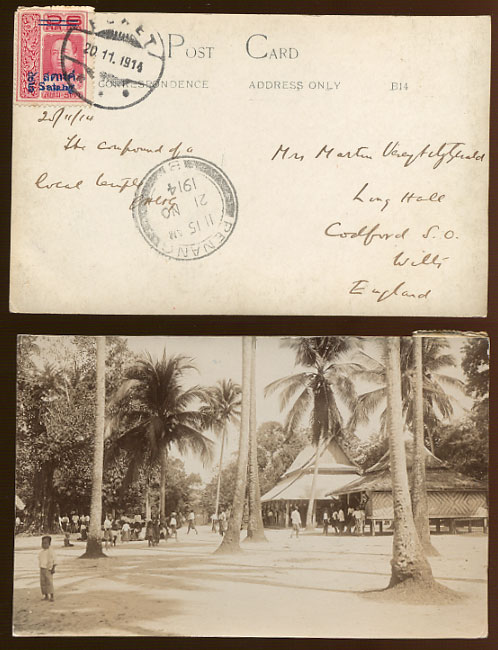 สตางค์
Satang
20 11. 1914
POST CARD
CORRESPONDENCE ADDRESS ONLY B14
20/11/14
The compound of a
local temple
PENANG
11 15 AM
21 NO
1914
Mrs Martin
Long Hall
Codford S.O.
Wilts
England